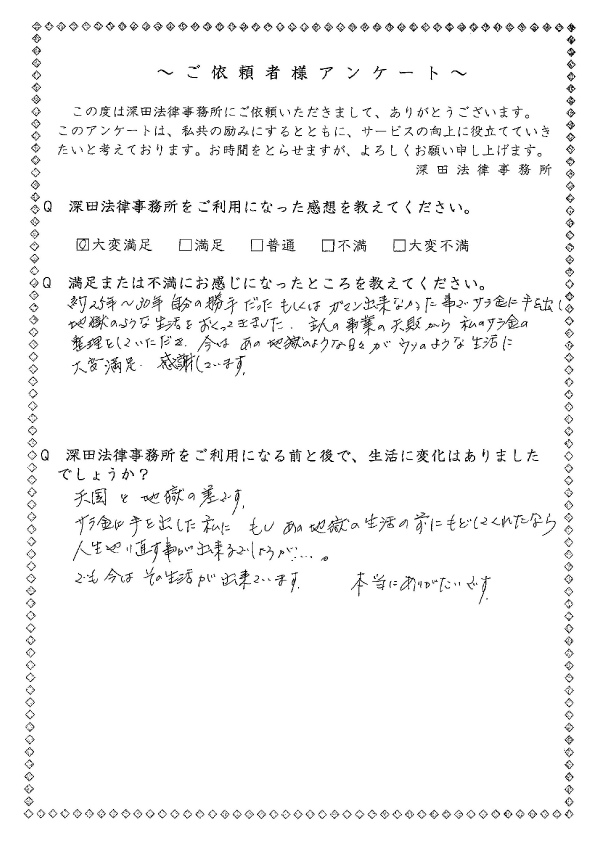 ～ご依頼者様アンケート～
この度は深田法律事務所にご依頼いただきまして、ありがとうございます。
このアンケートは、私共の励みにするとともに、サービスの向上に役立てていき
たいと考えております。お時間をとらせますが、よろしくお願い申し上げます。
深田法律事務所
Q 深田法律事務所をご利用になった感想を教えてください。
☑大変満足 □満足 □普通 □不満 □大変不満
Q 満足または不満にお感じになったところを教えてください。
約25年～30年 自分の勝手だった もしくは ガマン出来なかった事でサラ金に手を出し
地獄のような生活をおくってきました. 主人の事業の失敗から 私のサラ金の
整理をしていただき. 今は あの地獄のような日々が ウソのような生活に
大変満足. 感謝しています.
Q 深田法律事務所をご利用になる前と後で、生活に変化はありました
でしょうか？
天国と地獄の差です.
サラ金に手を出した私に もし あの地獄の生活の前にもどしてくれたなら
人生やり直す事が出来るでしょうが…。
でも今は その生活が出来ています. 本当にありがたいです.